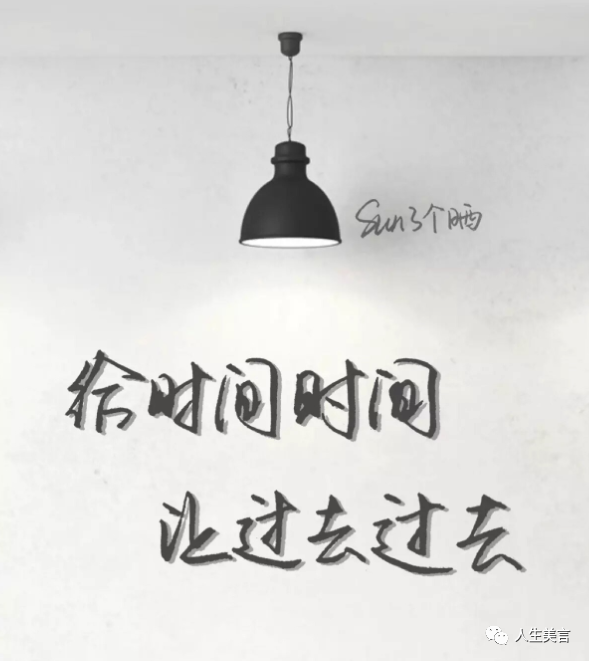 Sun了个晒
给时间时间
让过去过去
人生美言